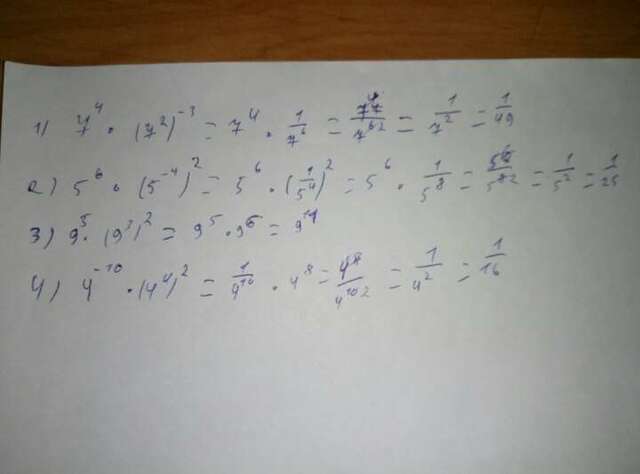 1) 7⁴ · (7²)⁻³ = 7⁴ · 1/7⁶ = 7⁴/7⁶ 2 = 1/7² = 1/49
2) 5⁶ · (5⁻⁴)² = 5⁶ · (1/5⁴)² = 5⁶ · 1/5⁸ = 5⁶/5⁸ 2 = 1/5² = 1/25
3) 9⁵ · (9³)² = 9⁵ · 9⁶ = 9¹¹
4) 4⁻¹⁰ · (4⁴)² = 1/4¹⁰ · 4⁸ = 4⁸/4¹⁰ 2 = 1/4² = 1/16